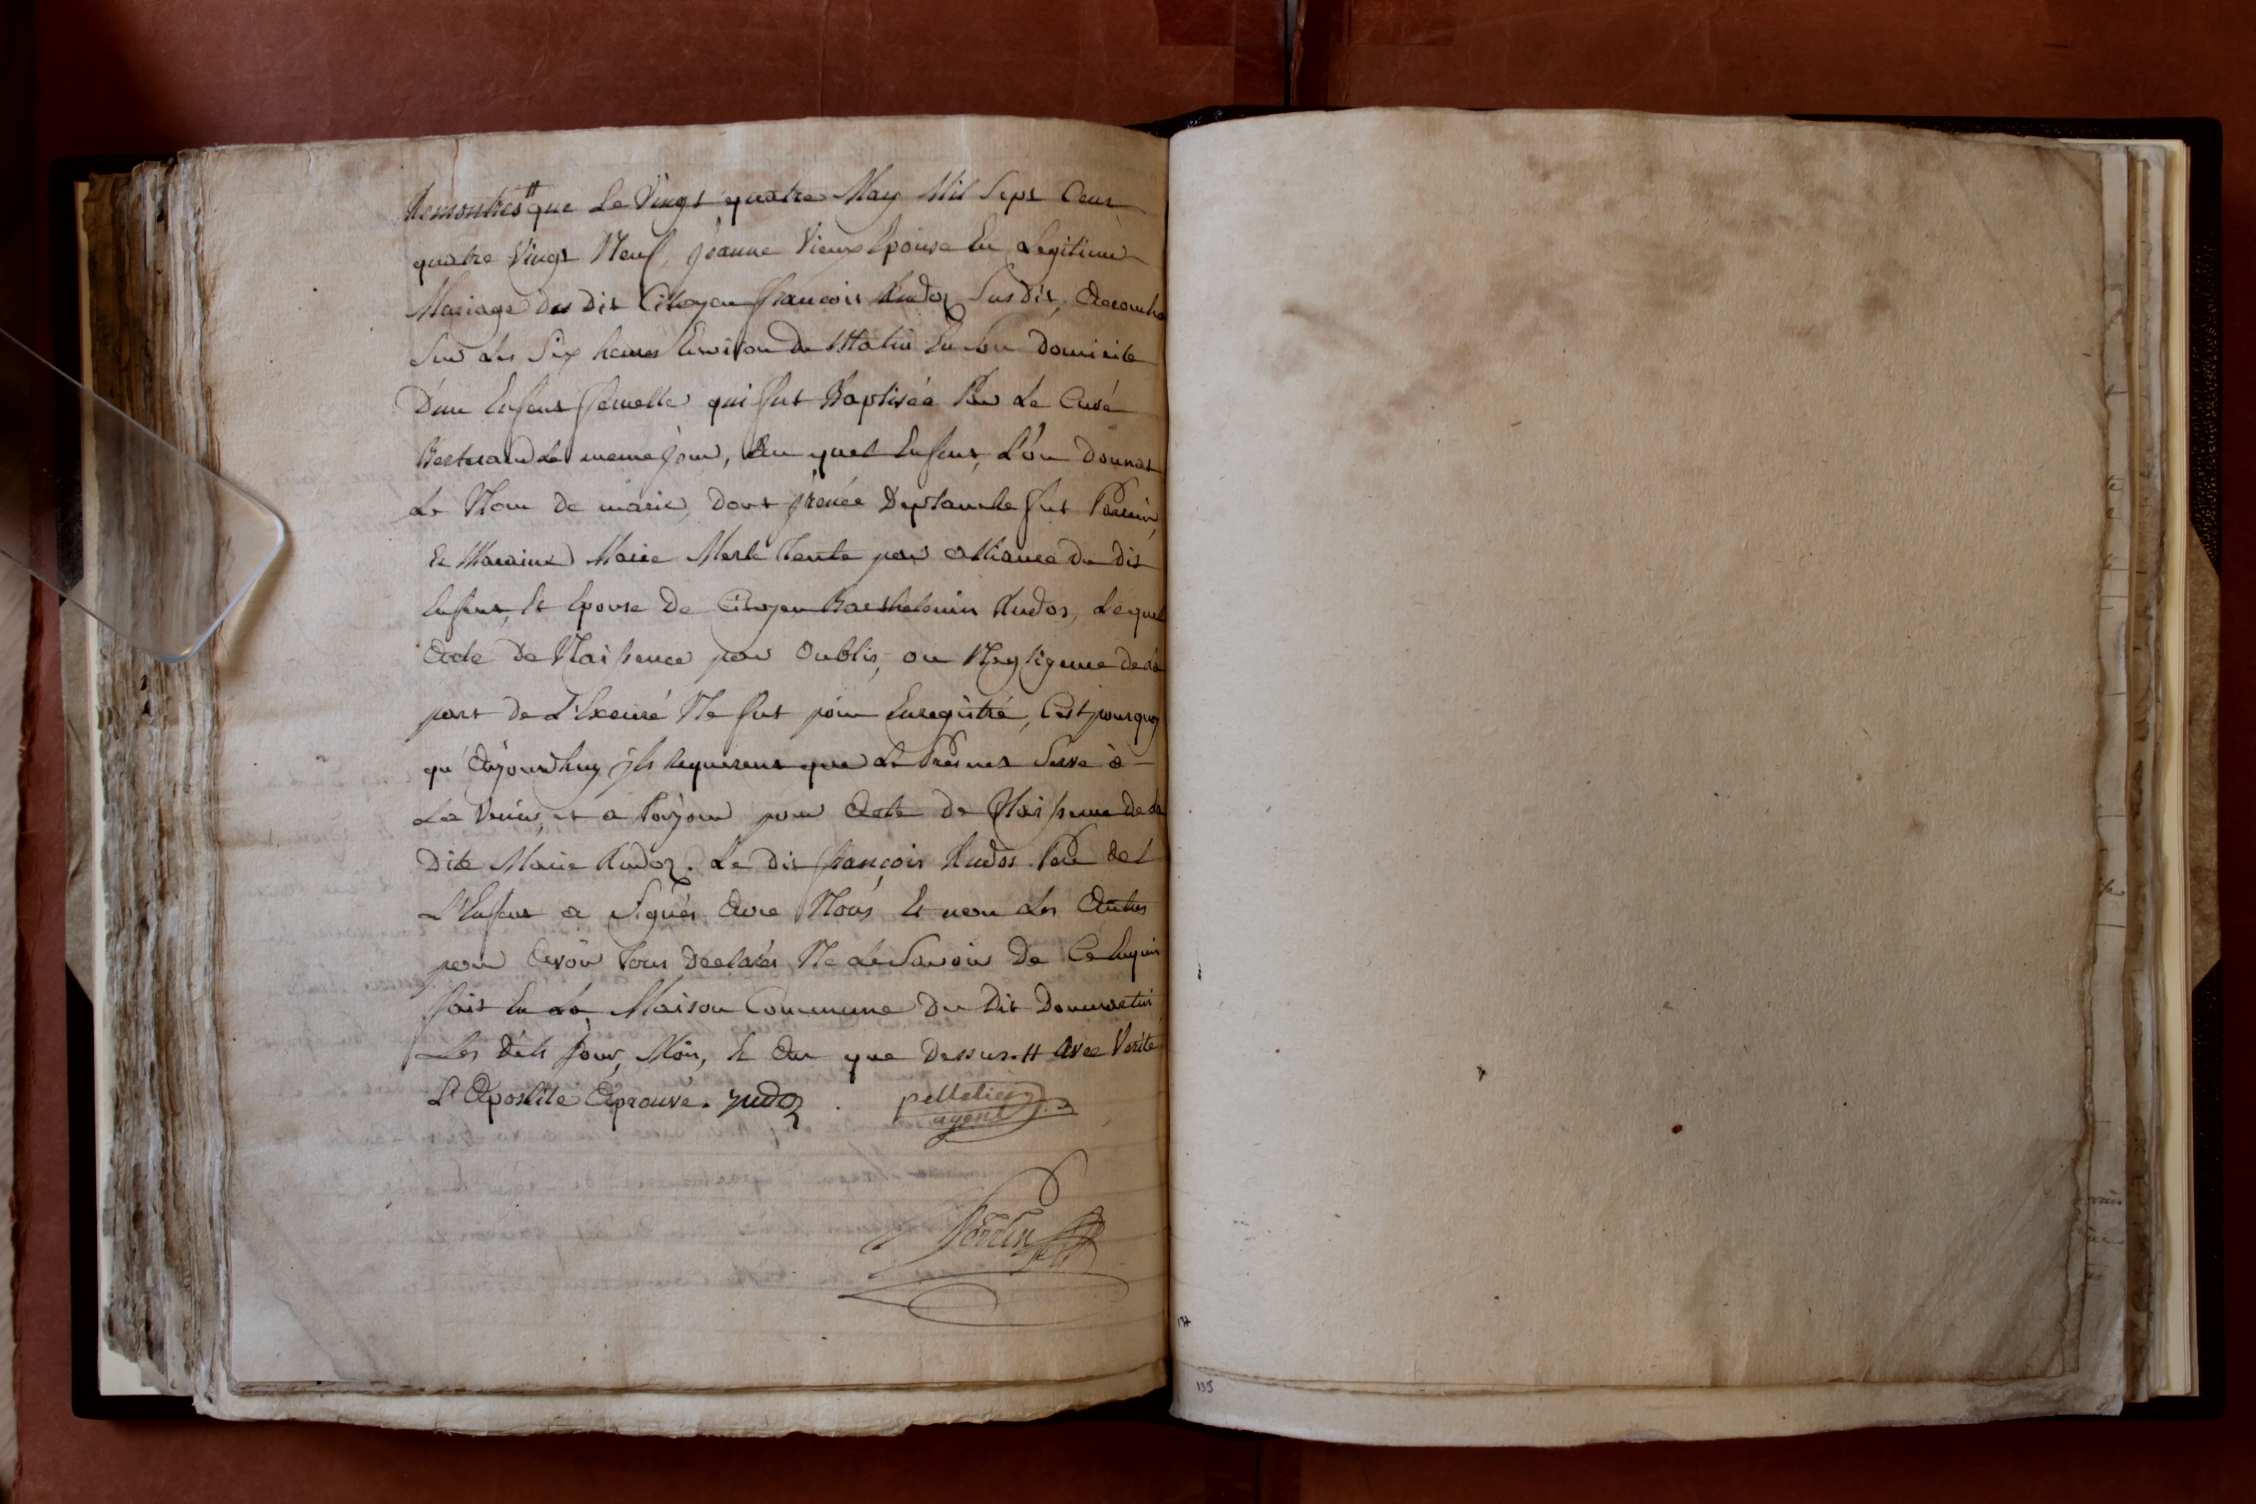 Remontres # que Le Vingt quatre May Mil Sept Cent
quatre Vingt Neuf, jeanne Vieux Epouse En Legitime
Mariage du dit Citoyen françois Rudoz Sus dit, Acoucha
Sur Les Six heures Environ du Matin En Son Domicile
D'un Enfant femelle qui fut Baptisée Par Le Curé
Bertrand Le meme jour, Au quel Enfant, L'on Donnat
Le Nom de marie, dont jrenée Deplanche fut Parain,
Et Maraine Marie Merle Tente par alliance du dit
Enfant, Et Epouse de Citoyen Barthelemin Rudos, Lequel
Acte de Naissence par Oublis, ou Negligence de La
part de L'Excuré Ne fut point Enregistré, C'est pourquoy
qu'Aujourdhuy jls Requerent que Le Présent Serve à
La Venir, et a Toujour pour Acte de Naissence de La
Dite Marie Rudoz. Le dit françois Rudos Pere de
L'Enfant a Signés Avec Nous Et non Les Autres
pour Avoir Tous Declarés Ne Le Savoir de Ce Enquis
fait En La Maison Commune du dit Dommartin
Les Dits jour, Mois, Et An que Dessus. # avec Verité
L'Apostile Aprouvé. rudoz pelletier
agent